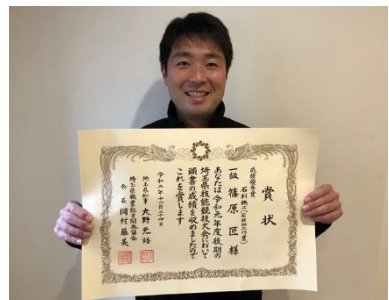 賞状
成績優秀賞
石材施工(石材加工作業)
一級 篠原 匠 様
あなたは令和元年度後期の
埼玉県技能競技大会において
頭書の成績を収めましたので
これを賞します
令和二年十一月二十四日
埼玉県知事 大野元裕
埼玉県職業能力開発協会
会長 岡村藤美